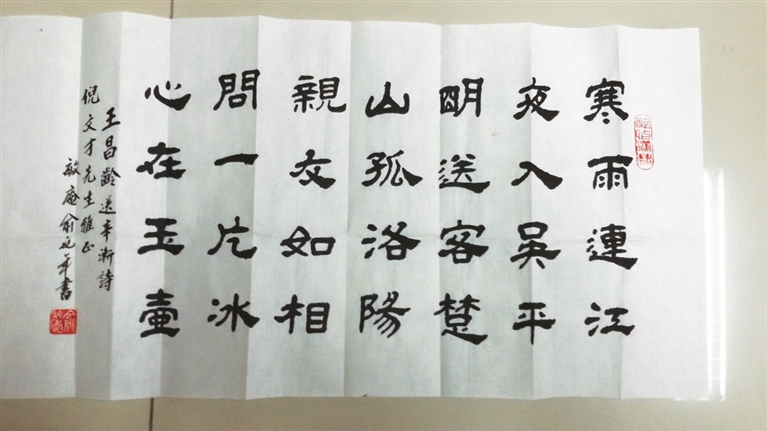 寒雨連江
夜入吳平
明送客楚
山孤洛陽
親友如相
問一片冰
心在玉壺
王昌齡送辛漸詩
倪文才先生雅正
敏庵俞
年書